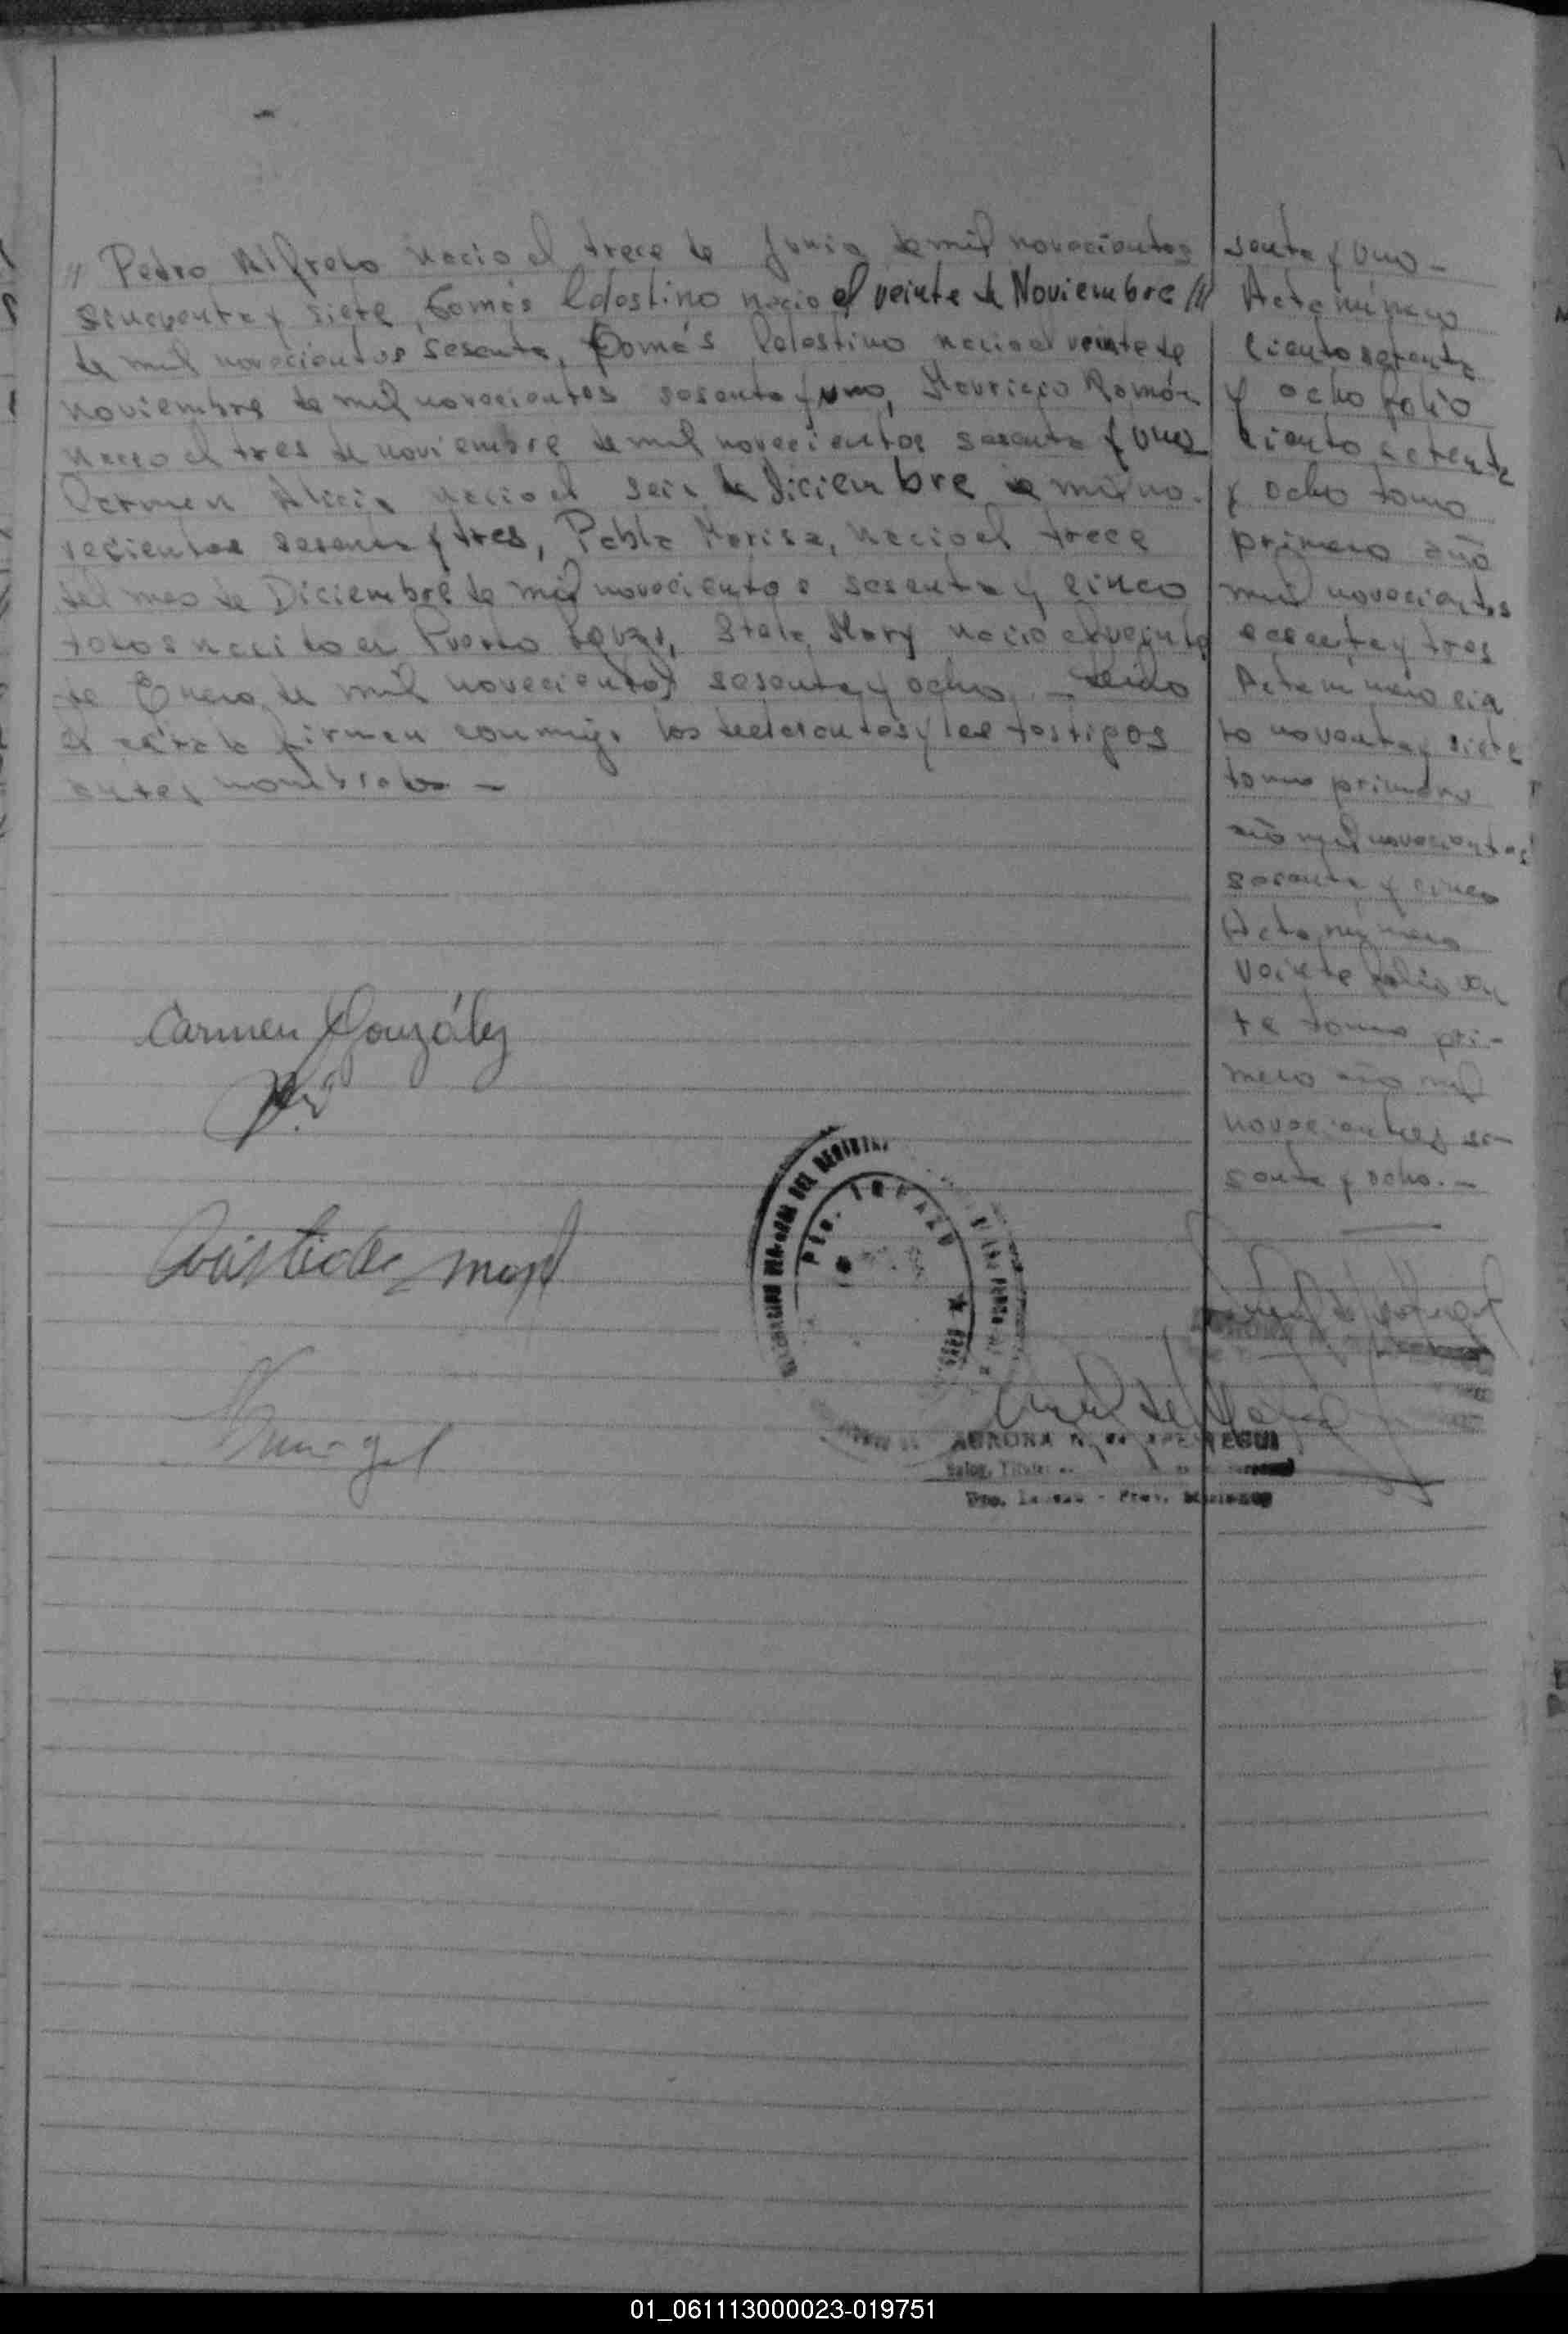 " Pedro Alfredo nacio el trece de Junio de mil novecientos
sincuenta y siete, Tomás Celestino nacio el veinte de Noviembre ///
de mil novecientos sesenta, Tomás Celestino nacio el veinte de
noviembre de mil novecientos sesenta y uno, Mauricio Román
nacio el tres de noviembre de mil novecientos sesenta y uno
Carmen Alicia nacio el seis de Diciembre de mil no-
vecientos sesenta y tres, Pabla Marisa, nacio el trece
del mes de Diciembre de mil novecientos sesenta y cinco
todos nacido en Puerto, Mary nacio el veinte
de Enero de mil novecientos sesenta y ocho - Leida
el acta la firman conmigo los declarantes y los testigos
antes nombrados -
senta y uno -
Acta número
ciento setenta
y ocho folio
ciento setenta
y ocho tomo
primero año
mil novecientos
sesenta y tres
Acta número cien
to noventa y siete
tomo primero
año mil novecientos
sesenta y cinco
Acta número
veinte folio vein
te tomo pri-
mero año mil
novecientos se-
senta y ocho. -
Carmen González
Aristides
DEL REGISTRO
Pto.
AURORA N. de
Pto. - Prov. Misiones
01_061113000023-019751